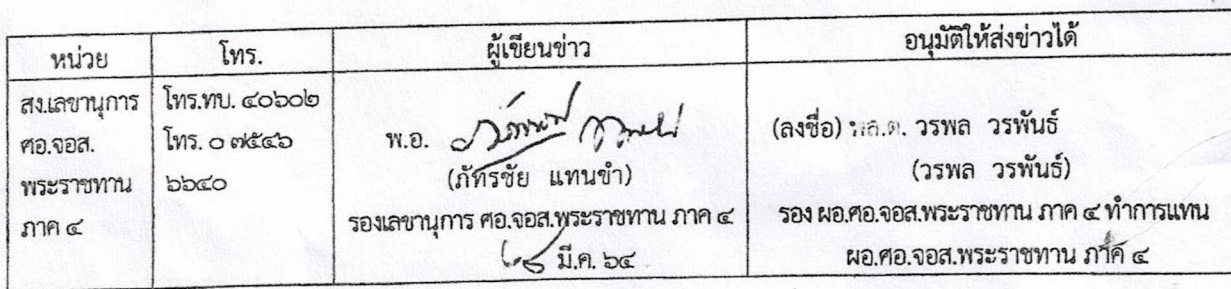 หน่วย โทร. ผู้เขียนข่าว อนุมัติให้ส่งข่าวได้
สง.เลขานุการ
ศอ.จอส.
พระราชทาน
ภาค ๔
โทร.ทบ. ๔๐๖๐๒
โทร. ๐ ๗๕๔๖
๖๖๔๐
พ.อ.
(ภัทรชัย แทนขำ)
รองเลขานุการ ศอ.จอส.พระราชทาน ภาค ๔
มี.ค. ๖๔
(ลงชื่อ) พล.ต. วรพล วรพันธ์
(วรพล วรพันธ์)
รอง ผอ.ศอ.จอส.พระราชทาน ภาค ๔ ทำการแทน
ผอ.ศอ.จอส.พระราชทาน ภาค ๔